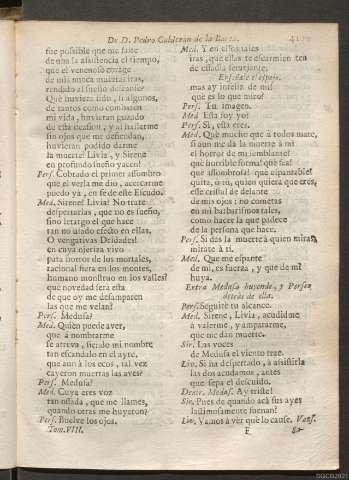 De D. Pedro Calderon de la Barca.
fue possible que me falte
de una la assistencia el tiempo,
que el venenoso corage
de mis nunca muertas iras,
rendido al sueño descanse?
Que huviera sido, si algunos,
de tantos como combaten
mi vida, huvieran gozado
de esta ocasion, y al hallarme
sin ojos que me defiendan,
huvieran podido darme
la muerte! Livia, y Sirene
en profundo sueño yacen!
Pers. Cobrado el primer assombro
que el verla me dio, acercarme
puedo ya, en fee de este Escudo.
Med. Sirene! Livia! No trate
despertarlas, que no es sueño,
sino letargo el que hace
tan no usado efecto en ellas.
O vengativas Deidades!
en cuya ojeriza vivo
para horror de los mortales,
racional fiera en los montes,
humano monstruo en los valles?
què novedad serà esta
de que oy me desamparen
las que me velan?
Pers. Medusa?
Med. Quien puede aver,
que à nombrarme
se atreva, siendo mi nombre
tan escandalo en el ayre,
que aun à los ecos, tal vez
cayeron muertas las aves?
Pers. Medusa?
Med. Cuya eres voz
tan osada, que me llames,
quando otras me huyeron?
Pers. Buelve los ojos.
Tom. VIII.
Med. Y en ellos tales
iras, que ellas te escarmienten
de essadia semejante.
Enseñale el espejo.
mas ay infelia de mi!
què es lo que miro?
Pers. Tu imagen.
Med. Esta soy yo?
Pers. Si, esta eres.
Med. Què mucho que à todos mate,
si aun me dà la muerte à mi
el horror de mi semblante!
què horrible forma! què fea!
què assombrosa! què espantable!
quita, ò tu, quien quiera que eres,
esse cristal de delante
de mis ojos: no cometas
en mi barbarismos tales,
como hacer la que padece
de la persona que hace.
Pers. Si dàs la muerte à quien miras,
mirate à ti.
Med. Que me espante
de mi, es fuerza, y que de mi
huya.
Entra Medusa huyendo, y Perseo
detràs de ella.
Pers. Seguirè tu alcance.
Med. Sirene, Livia, acudidme
à valerme, y ampararme,
que me dàn muerte.
Sir. Las voces
de Medusa el viento trae.
Liv. Si ha despertado, à assistirla
las dos acudamos, antes
que sepa el descuido.
Dentr. Medus. Ay triste!
Sir. Pues de quando acà sus ayes
lastimosamente suenan?
Liv. Vamos à vèr que lo cause. Vans.
F